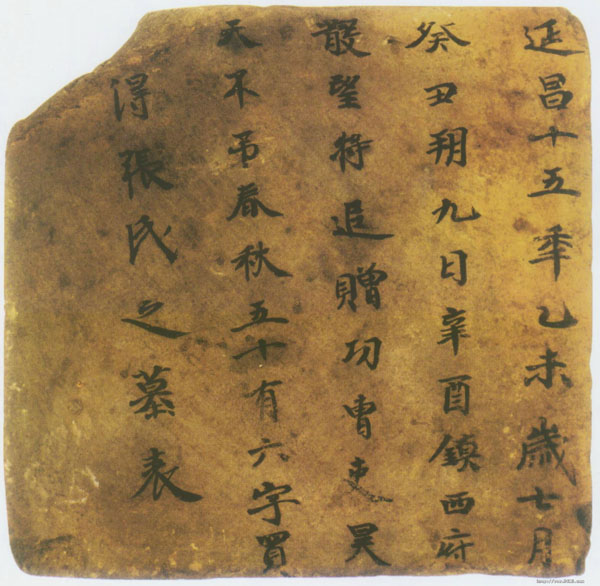 延昌十五年乙未歳七月
癸丑朔九日辛酉鎮西府
散望将追贈功曹吏昊
天不弔春秋五十有六字買
得張氏之墓表